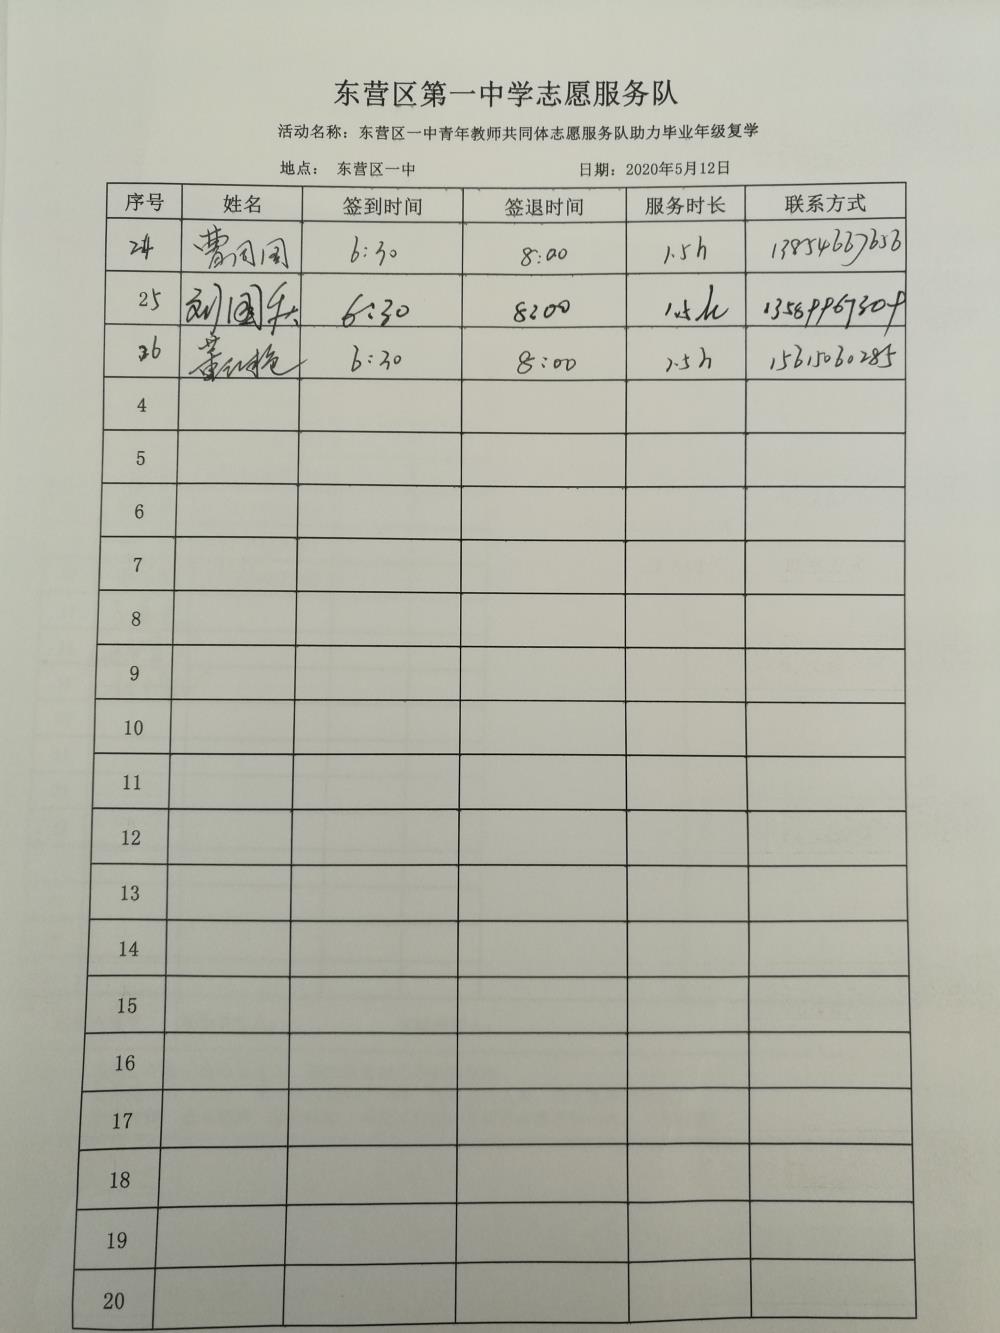 东营区第一中学志愿服务队
活动名称：东营区一中青年教师共同体志愿服务队助力毕业年级复学
地点： 东营区一中 日期：2020年5月12日
序号 姓名 签到时间 签退时间 服务时长 联系方式
24 曹同国 6:30 8:00 1.5h 13854667656
25 刘国 6:30 8:00 1.5h
26 董红艳 6:30 8:00 1.5h 15615060285
4
5
6
7
8
9
10
11
12
13
14
15
16
17
18
19
20